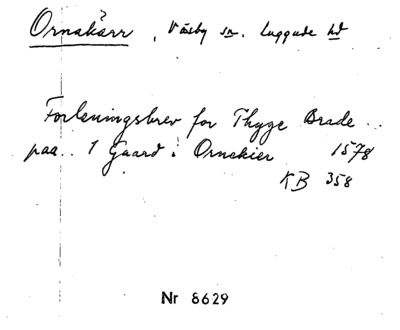 Ornakärr, Väsby sn. Luggude hd
Forleningsbrev for Thyge Brade ..
paa .. 1 Gaard i Ornekier 1578
KB 358
Nr 8629